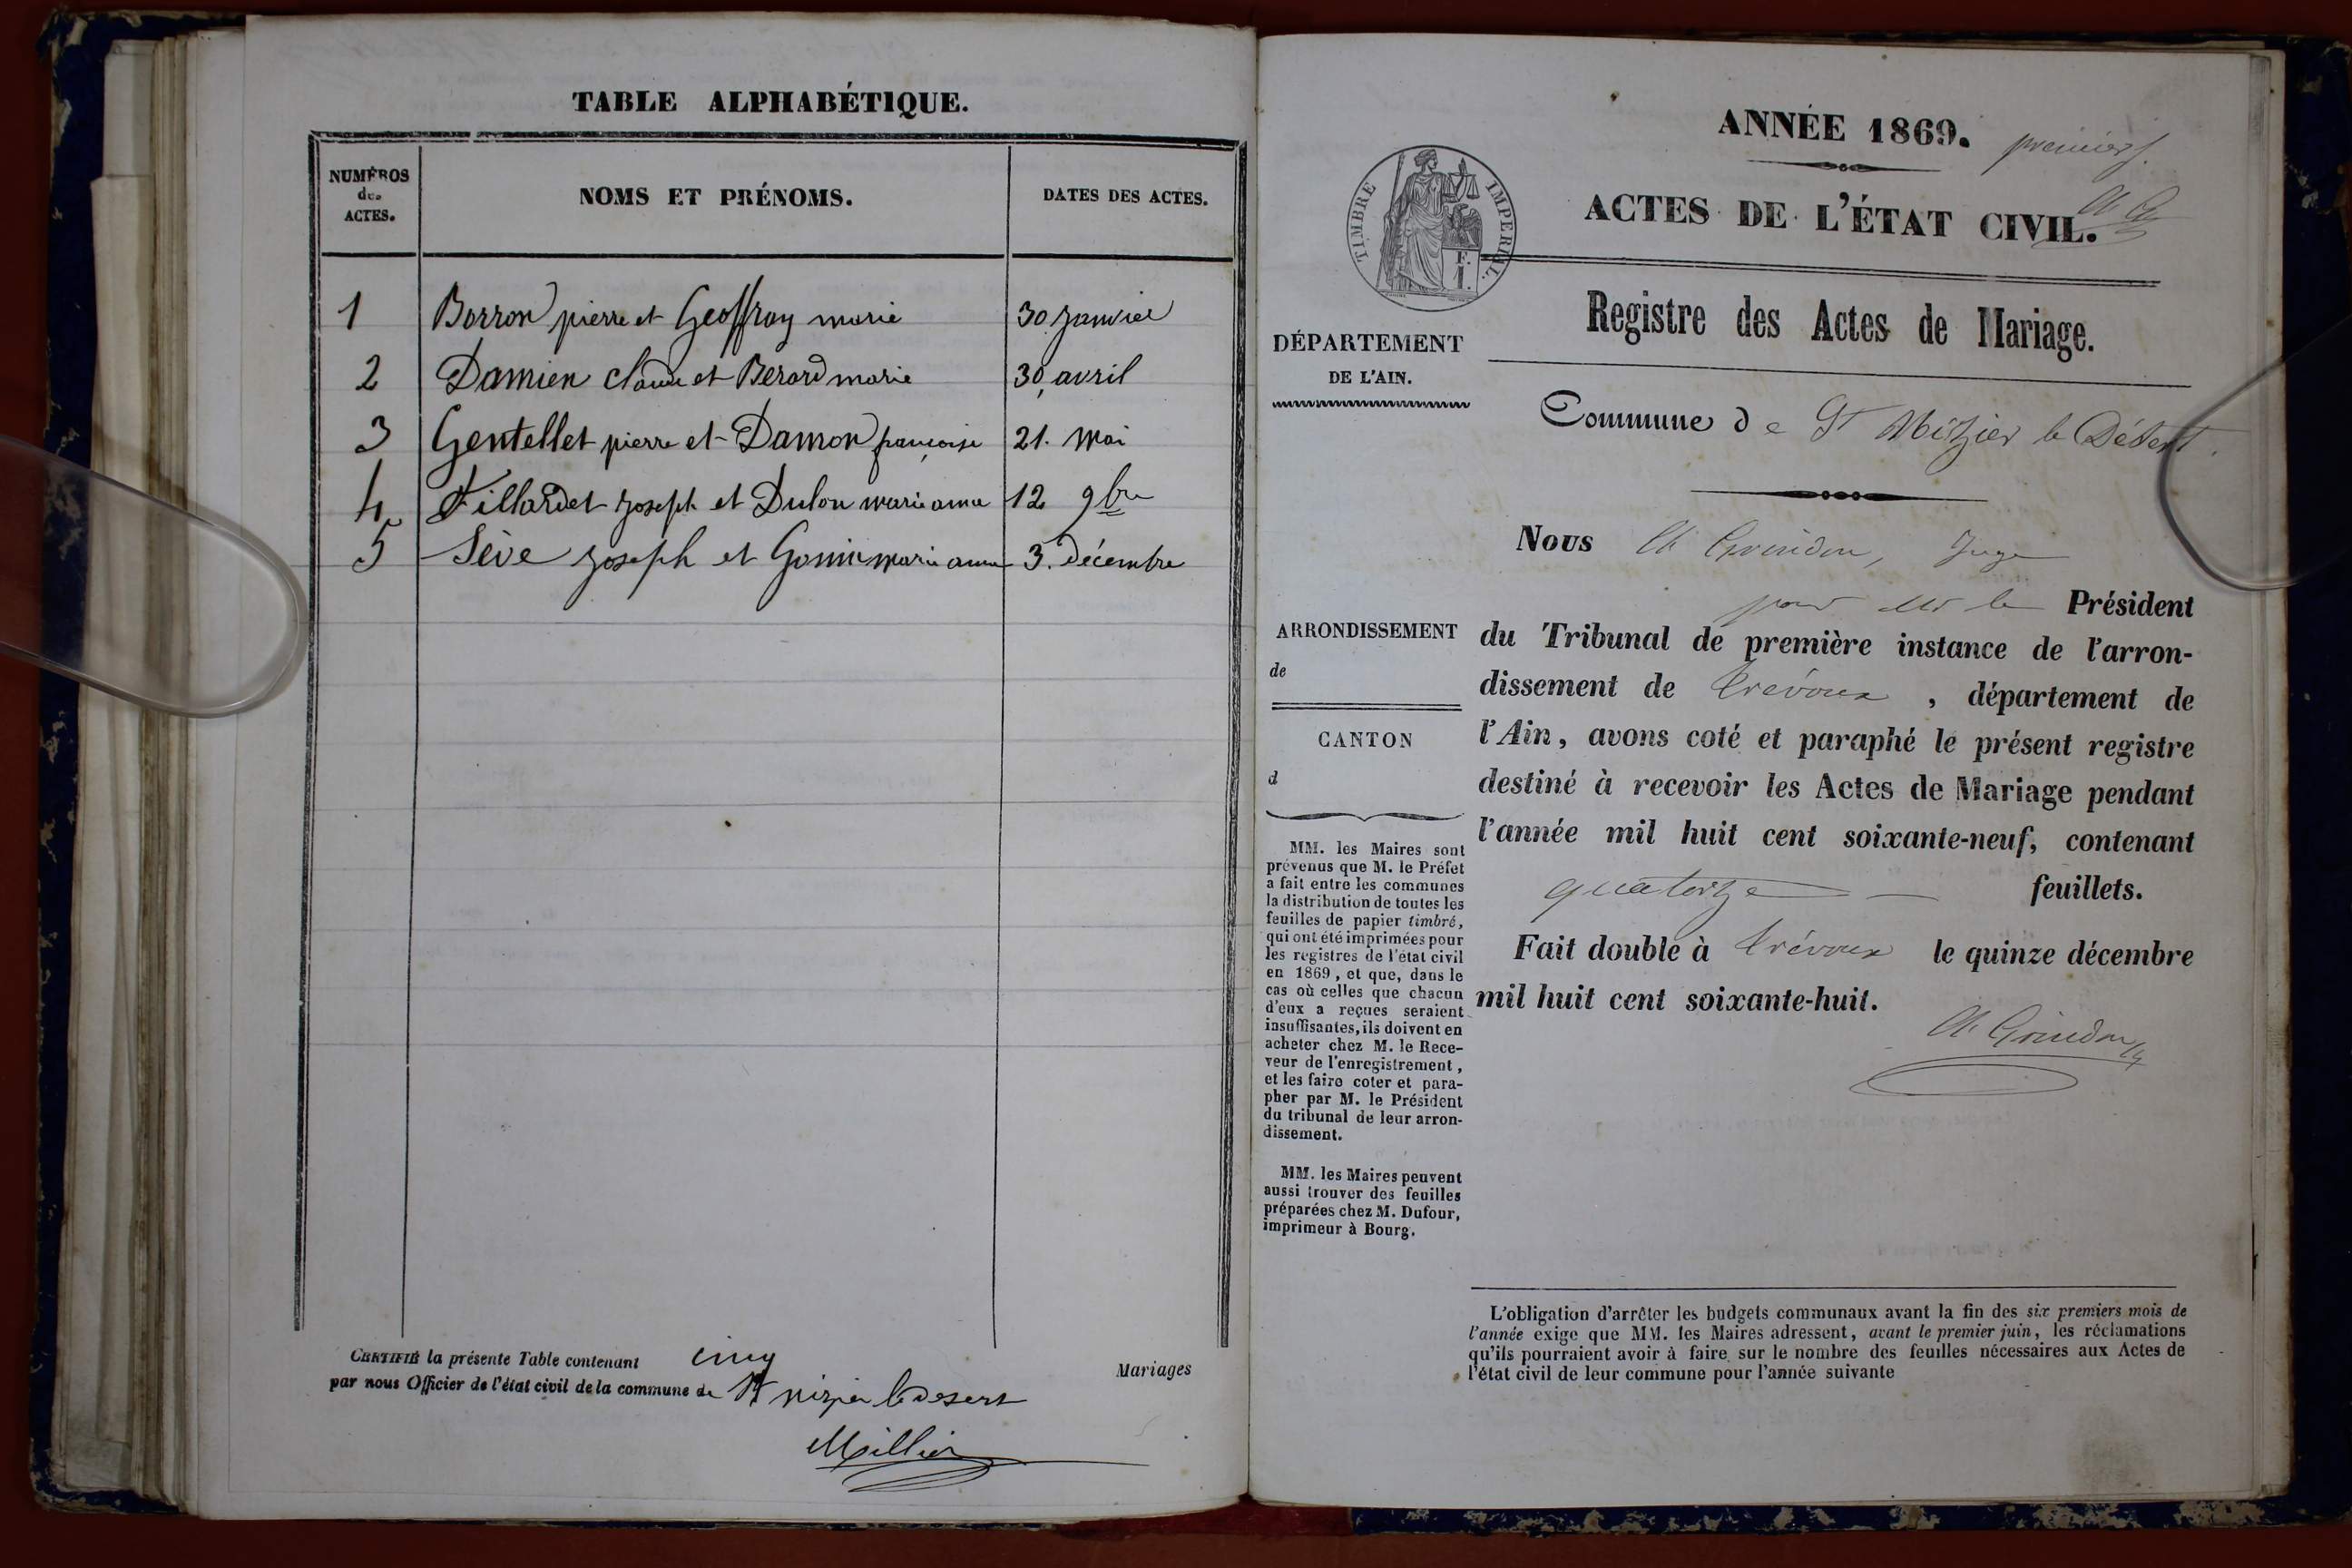 TABLE ALPHABÉTIQUE.
NUMÉROS
des
ACTES.
NOMS ET PRÉNOMS.
DATES DES ACTES.
1 Borron pierre et Geoffray marie 30 Janvier
2 Damien claude et Berard marie 30 avril
3 Gentellet pierre et Damon françoise 21. Mai
4 Fillardet Joseph et Dulon marie anne 12 9bre
5 Sève Joseph et Gonin marie anne 3. Décembre
CERTIFIÉ la présente Table contenant cinq Mariages
par nous Officier de l'état civil de la commune de St nizier le desert
Millier
ANNÉE 1869.
premier
ACTES DE L'ÉTAT CIVIL.
TIMBRE IMPERIAL.
1 F.
Registre des Actes de Mariage.
DÉPARTEMENT
DE L'AIN.
Commune de St Nizier le Désert.
Nous Ch Grindon, Juge
pour Mr le Président
du Tribunal de première instance de l'arron-
dissement de Trévoux, département de
l'Ain, avons coté et paraphé le présent registre
destiné à recevoir les Actes de Mariage pendant
l'année mil huit cent soixante-neuf, contenant
quatorze feuillets.
Fait double à Trévoux le quinze décembre
mil huit cent soixante-huit.
Ch Grindon
ARRONDISSEMENT
de
CANTON
d
MM. les Maires sont
prévenus que M. le Préfet
a fait entre les communes
la distribution de toutes les
feuilles de papier timbré,
qui ont été imprimées pour
les registres de l'état civil
en 1869, et que, dans le
cas où celles que chacun
d'eux a reçues seraient
insuffisantes, ils doivent en
acheter chez M. le Rece-
veur de l'enregistrement,
et les faire coter et para-
pher par M. le Président
du tribunal de leur arron-
dissement.
MM. les Maires peuvent
aussi trouver des feuilles
préparées chez M. Dufour,
imprimeur à Bourg.
L'obligation d'arrêter les budgets communaux avant la fin des six premiers mois de
l'année exige que MM. les Maires adressent, avant le premier juin, les réclamations
qu'ils pourraient avoir à faire sur le nombre des feuilles nécessaires aux Actes de
l'état civil de leur commune pour l'année suivante